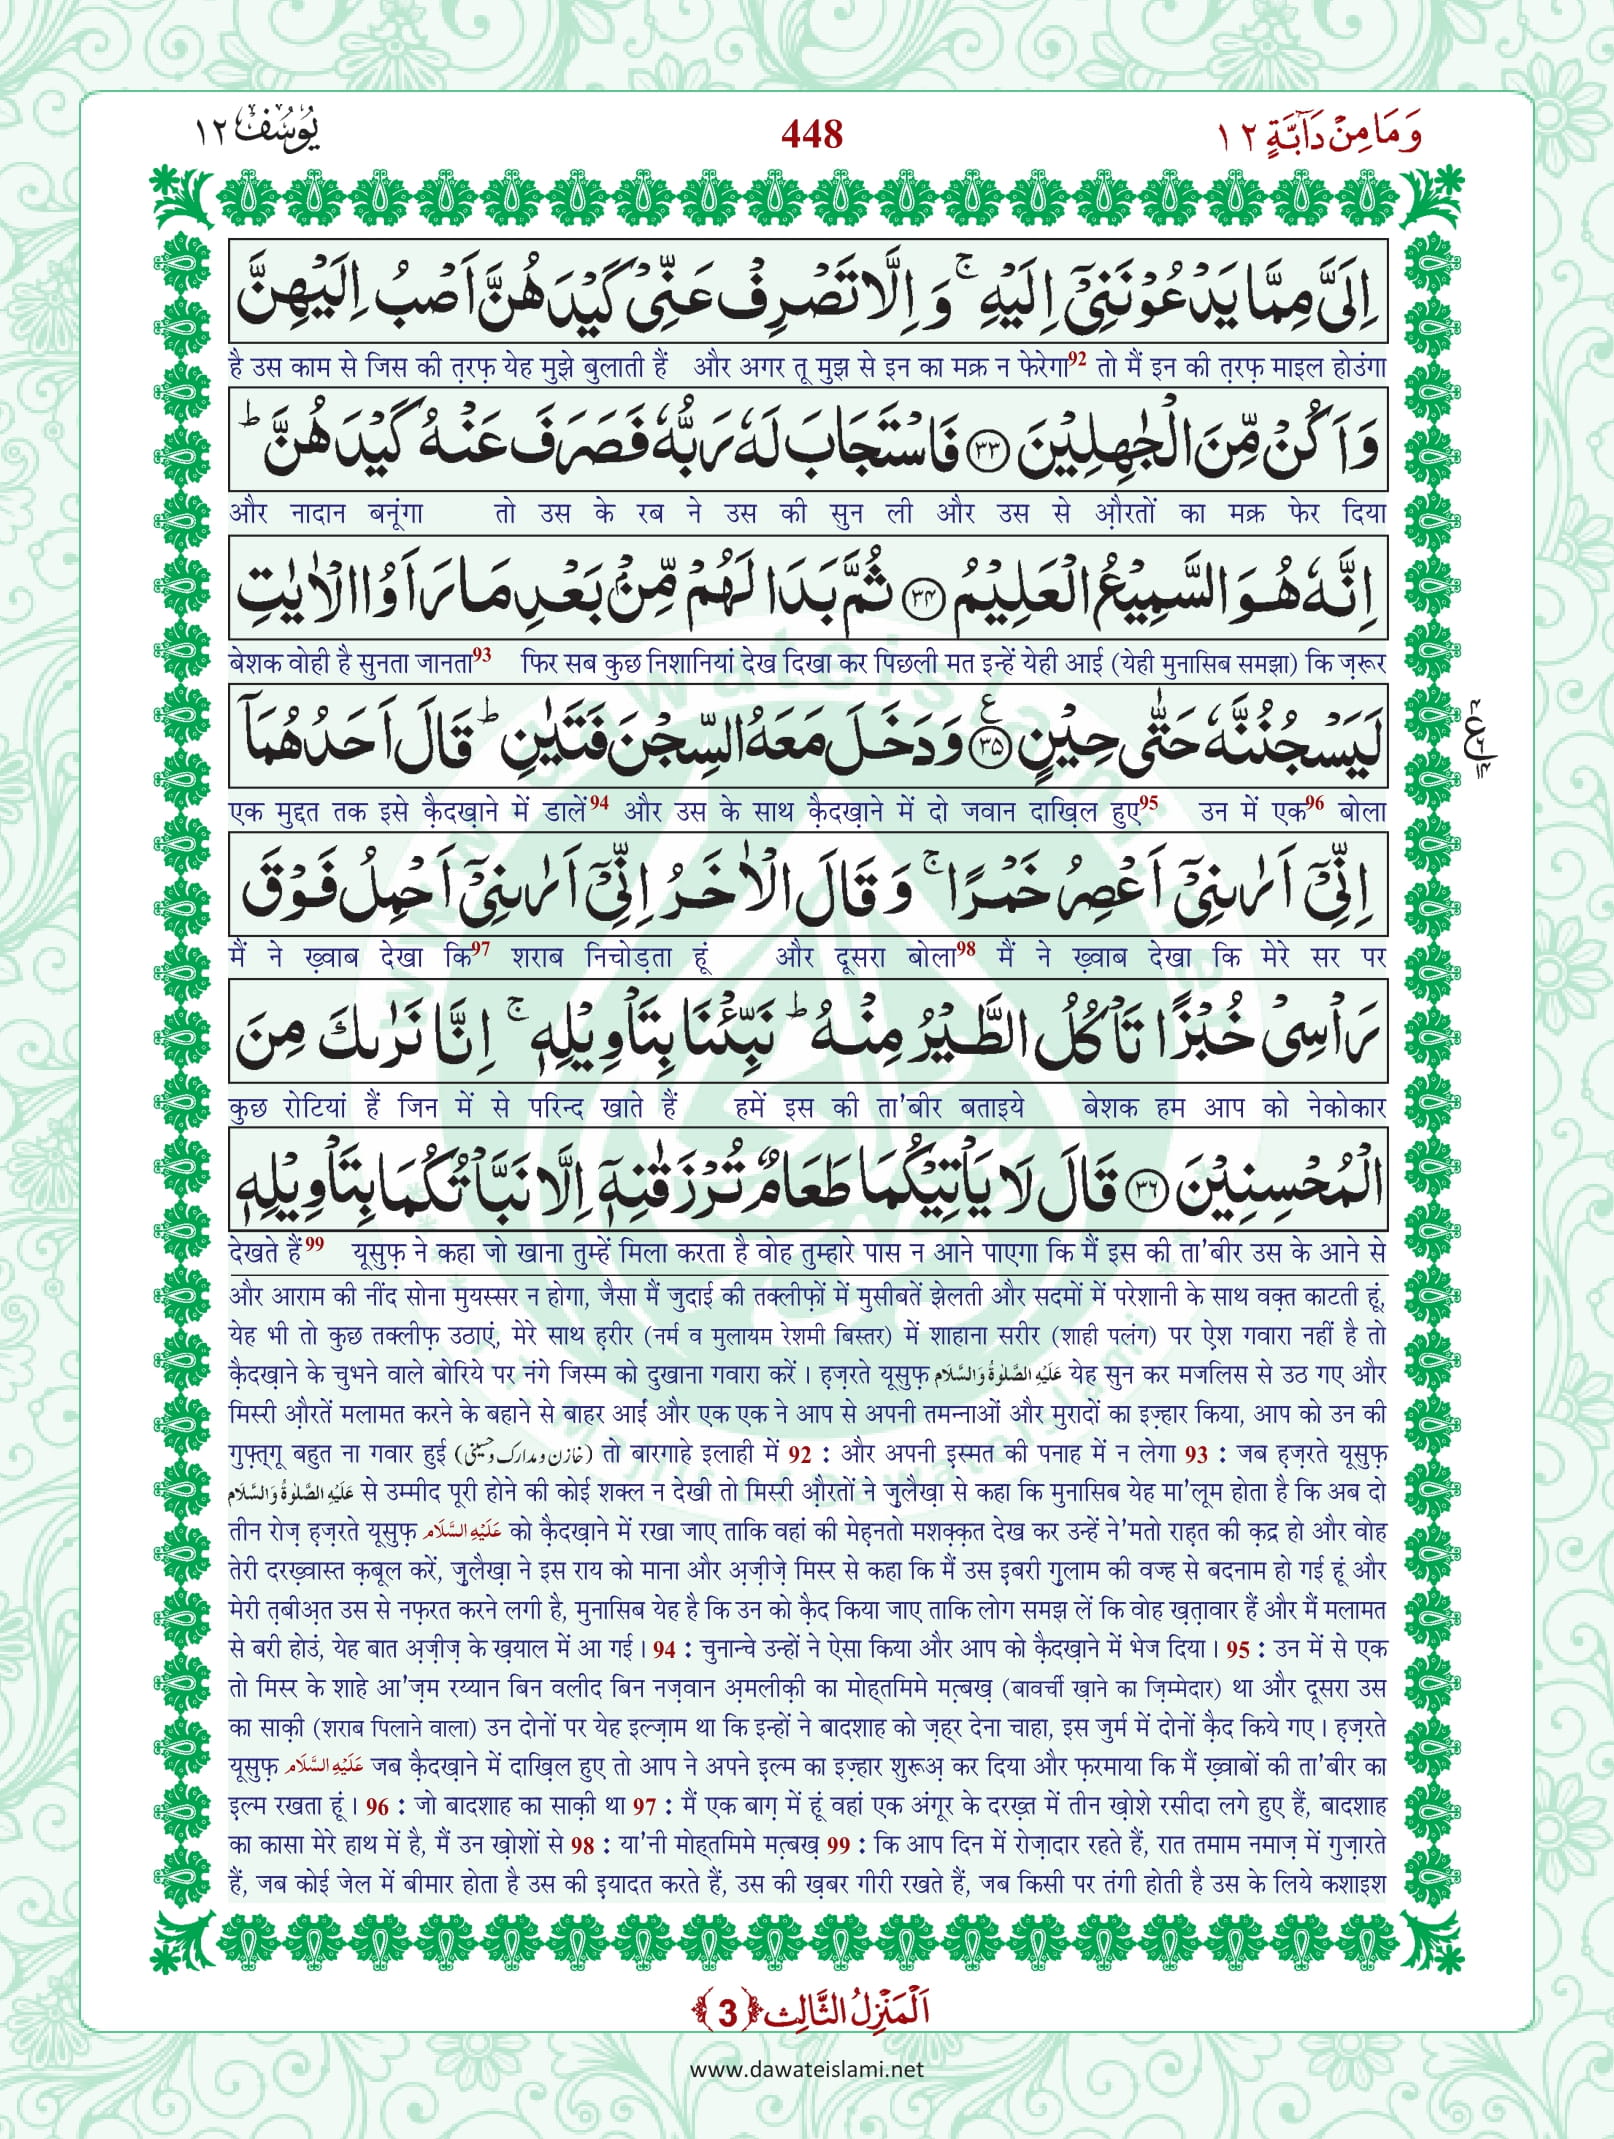 يُوْسُف ١٢
448
وَمَا مِنْ دَآبَّةٍ ١٢
اِلَیَّ مِمَّا یَدْعُوْنَنِیْۤ اِلَیْهِۚ وَ اِلَّا تَصْرِفْ عَنِّیْ كَیْدَهُنَّ اَصْبُ اِلَیْهِنَّ
है उस काम से जिस की त़रफ़ येह मुझे बुलाती हैं और अगर तू मुझ से इन का मक्र न फेरेगा92 तो मैं इन की त़रफ़ माइल होउंगा
وَ اَكُنْ مِّنَ الْجٰهِلِیْنَ ﴿۳۳﴾ فَاسْتَجَابَ لَهٗ رَبُّهٗ فَصَرَفَ عَنْهُ كَیْدَهُنَّؕ
और नादान बनूंगा तो उस के रब ने उस की सुन ली और उस से औ़रतों का मक्र फेर दिया
اِنَّهٗ هُوَ السَّمِیْعُ الْعَلِیْمُ ﴿۳۴﴾ ثُمَّ بَدَا لَهُمْ مِّنْۢ بَعْدِ مَا رَاَوُا الْاٰیٰتِ
बेशक वोही है सुनता जानता93 फिर सब कुछ निशानियां देख दिखा कर पिछली मत इन्हें येही आई (येही मुनासिब समझा) कि ज़रूर
لَیَسْجُنُنَّهٗ حَتّٰى حِیْنٍ ﴿۳۵﴾ ع وَ دَخَلَ مَعَهُ السِّجْنَ فَتَیٰنِؕ قَالَ اَحَدُهُمَاۤ
एक मुद्दत तक इसे क़ैदख़ाने में डालें94 और उस के साथ क़ैदख़ाने में दो जवान दाख़िल हुए95 उन में एक96 बोला
اِنِّیْۤ اَرٰىنِیْۤ اَعْصِرُ خَمْرًاۚ وَ قَالَ الْاٰخَرُ اِنِّیْۤ اَرٰىنِیْۤ اَحْمِلُ فَوْقَ
मैं ने ख़्वाब देखा कि97 शराब निचोड़ता हूं और दूसरा बोला98 मैं ने ख़्वाब देखा कि मेरे सर पर
رَاْسِیْ خُبْزًا تَاْكُلُ الطَّیْرُ مِنْهُؕ نَبِّئْنَا بِتَاْوِیْلِهٖۚ اِنَّا نَرٰىكَ مِنَ
कुछ रोटियां हैं जिन में से परिन्द खाते हैं हमें इस की ता'बीर बताइये बेशक हम आप को नेकोकार
الْمُحْسِنِیْنَ ﴿۳۶﴾ قَالَ لَا یَاْتِیْكُمَا طَعَامٌ تُرْزَقٰنِهٖۤ اِلَّا نَبَّاْتُكُمَا بِتَاْوِیْلِهٖ
देखते हैं99 यूसुफ़ ने कहा जो खाना तुम्हें मिला करता है वोह तुम्हारे पास न आने पाएगा कि मैं इस की ता'बीर उस के आने से
और आराम की नींद सोना मुयस्सर न होगा, जैसा मैं जुदाई की तक्लीफ़ों में मुसीबतें झेलती और सदमों में परेशानी के साथ वक़्त काटती हूं,
येह भी तो कुछ तक्लीफ़ उठाएं, मेरे साथ ह़रीर (नर्म व मुलायम रेशमी बिस्तर) में शाहाना सरीर (शाही पलंग) पर ऐश गवारा नहीं है तो
क़ैदख़ाने के चुभने वाले बोरिये पर नंगे जिस्म को दुखाना गवारा करें । ह़ज़रते यूसुफ़ عَلَیْهِ الصَّلٰوةُ وَالسَّلَام येह सुन कर मजलिस से उठ गए और
मिस्री औ़रतें मलामत करने के बहाने से बाहर आईं और एक एक ने आप से अपनी तमन्नाओं और मुरादों का इज़्हार किया, आप को उन की
गुफ़्तगू बहुत ना गवार हुई (خازن ومدارک وحسینی) तो बारगाहे इलाही में 92 : और अपनी इस्मत की पनाह में न लेगा 93 : जब ह़ज़रते यूसुफ़
عَلَیْهِ الصَّلٰوةُ وَالسَّلَام से उम्मीद पूरी होने की कोई शक्ल न देखी तो मिस्री औ़रतों ने ज़ुलैख़ा से कहा कि मुनासिब येह मा'लूम होता है कि अब दो
तीन रोज़ ह़ज़रते यूसुफ़ عَلَیْهِ السَّلَام को क़ैदख़ाने में रखा जाए ताकि वहां की मेह़नतो मशक़्क़त देख कर उन्हें ने'मतो राह़त की क़द्र हो और वोह
तेरी दरख़्वास्त क़बूल करें, ज़ुलैख़ा ने इस राय को माना और अ़ज़ीज़े मिस्र से कहा कि मैं उस इबरी ग़ुलाम की वज्ह से बदनाम हो गई हूं और
मेरी त़बीअ़त उस से नफ़रत करने लगी है, मुनासिब येह है कि उन को क़ैद किया जाए ताकि लोग समझ लें कि वोह ख़त़ावार हैं और मैं मलामत
से बरी होउं, येह बात अ़ज़ीज़ के ख़याल में आ गई । 94 : चुनान्चे उन्हों ने ऐसा किया और आप को क़ैदख़ाने में भेज दिया । 95 : उन में से एक
तो मिस्र के शाहे आ'ज़म रय्यान बिन वलीद बिन नज़वान अ़मलीक़ी का मोह्तमिमे मत़्बख़ (बावर्ची ख़ाने का ज़िम्मेदार) था और दूसरा उस
का साक़ी (शराब पिलाने वाला) उन दोनों पर येह इल्ज़ाम था कि इन्हों ने बादशाह को ज़ह्र देना चाहा, इस जुर्म में दोनों क़ैद किये गए । ह़ज़रते
यूसुफ़ عَلَیْهِ السَّلَام जब क़ैदख़ाने में दाख़िल हुए तो आप ने अपने इल्म का इज़्हार शुरूअ़ कर दिया और फ़रमाया कि मैं ख़्वाबों की ता'बीर का
इल्म रखता हूं । 96 : जो बादशाह का साक़ी था 97 : मैं एक बाग़ में हूं वहां एक अंगूर के दरख़्त में तीन ख़ोशे रसीदा लगे हुए हैं, बादशाह
का कासा मेरे हाथ में है, मैं उन ख़ोशों से 98 : या'नी मोह्तमिमे मत़्बख़ 99 : कि आप दिन में रोज़ादार रहते हैं, रात तमाम नमाज़ में गुज़ारते
हैं, जब कोई जेल में बीमार होता है उस की इयादत करते हैं, उस की ख़बर गीरी रखते हैं, जब किसी पर तंगी होती है उस के लिये कशाइश
اَلْمَنْزِلُ الثَّالِث ﴿3﴾
www.dawateislami.net